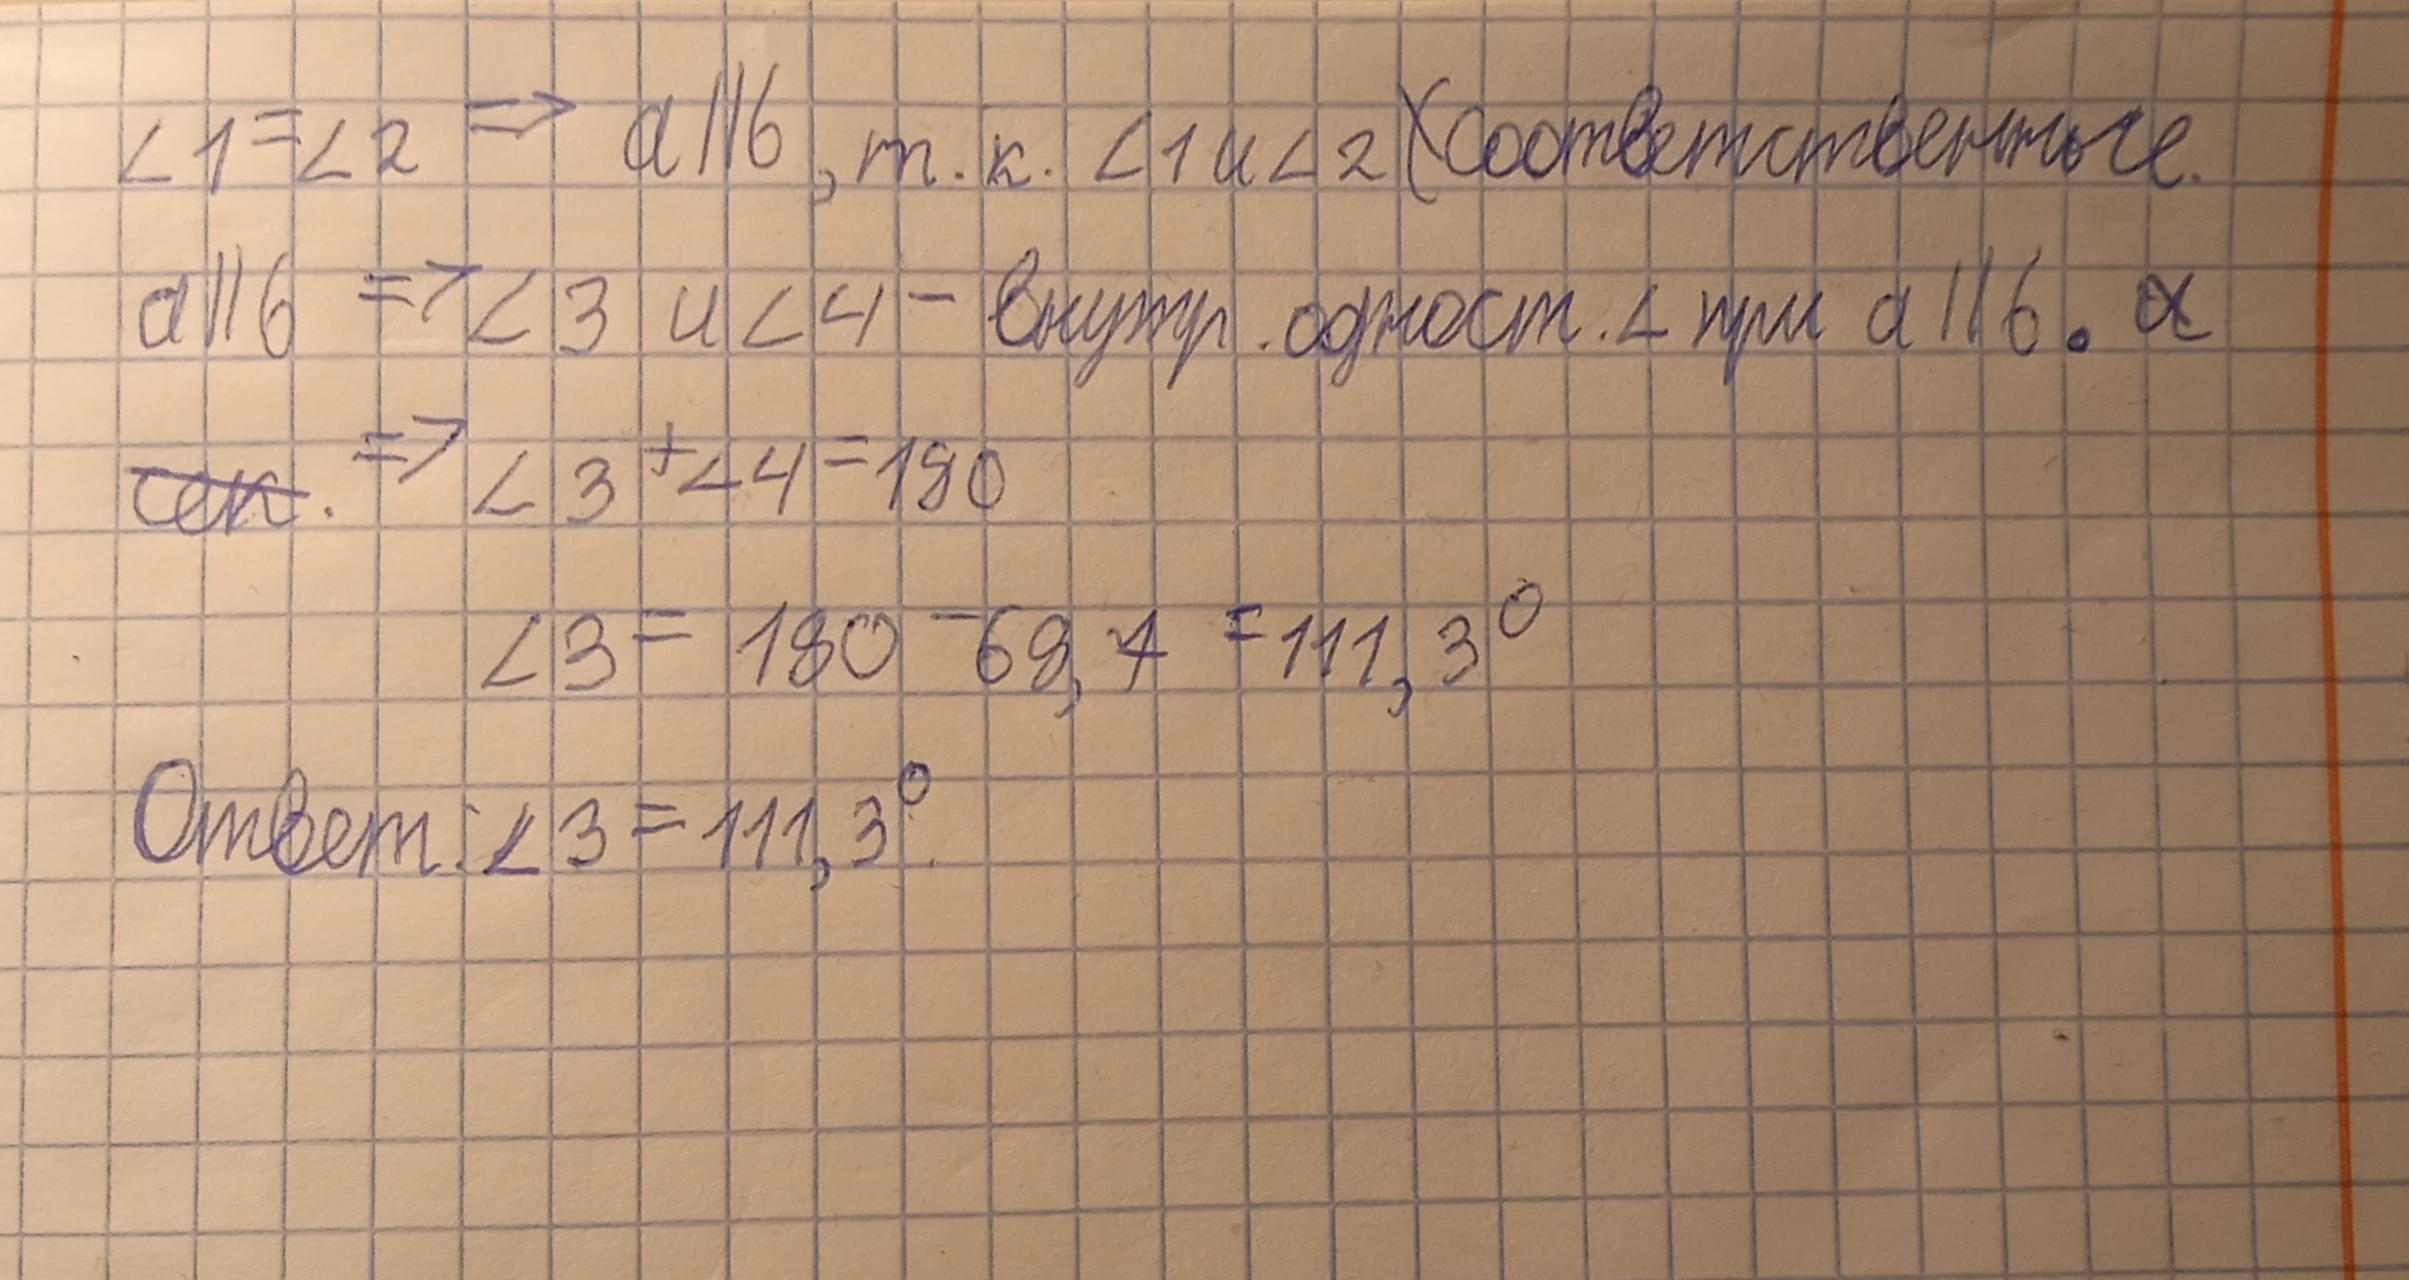 ∠1=∠2 => a||б, т.к. ∠1 и ∠2 (соответственные.
a||б => ∠3 и ∠4 - внутр. одност. ∠ при a||б.
=> ∠3 + ∠4 = 180
∠3 = 180 - 68,7 = 111,3°
Ответ: ∠3 = 111,3°.